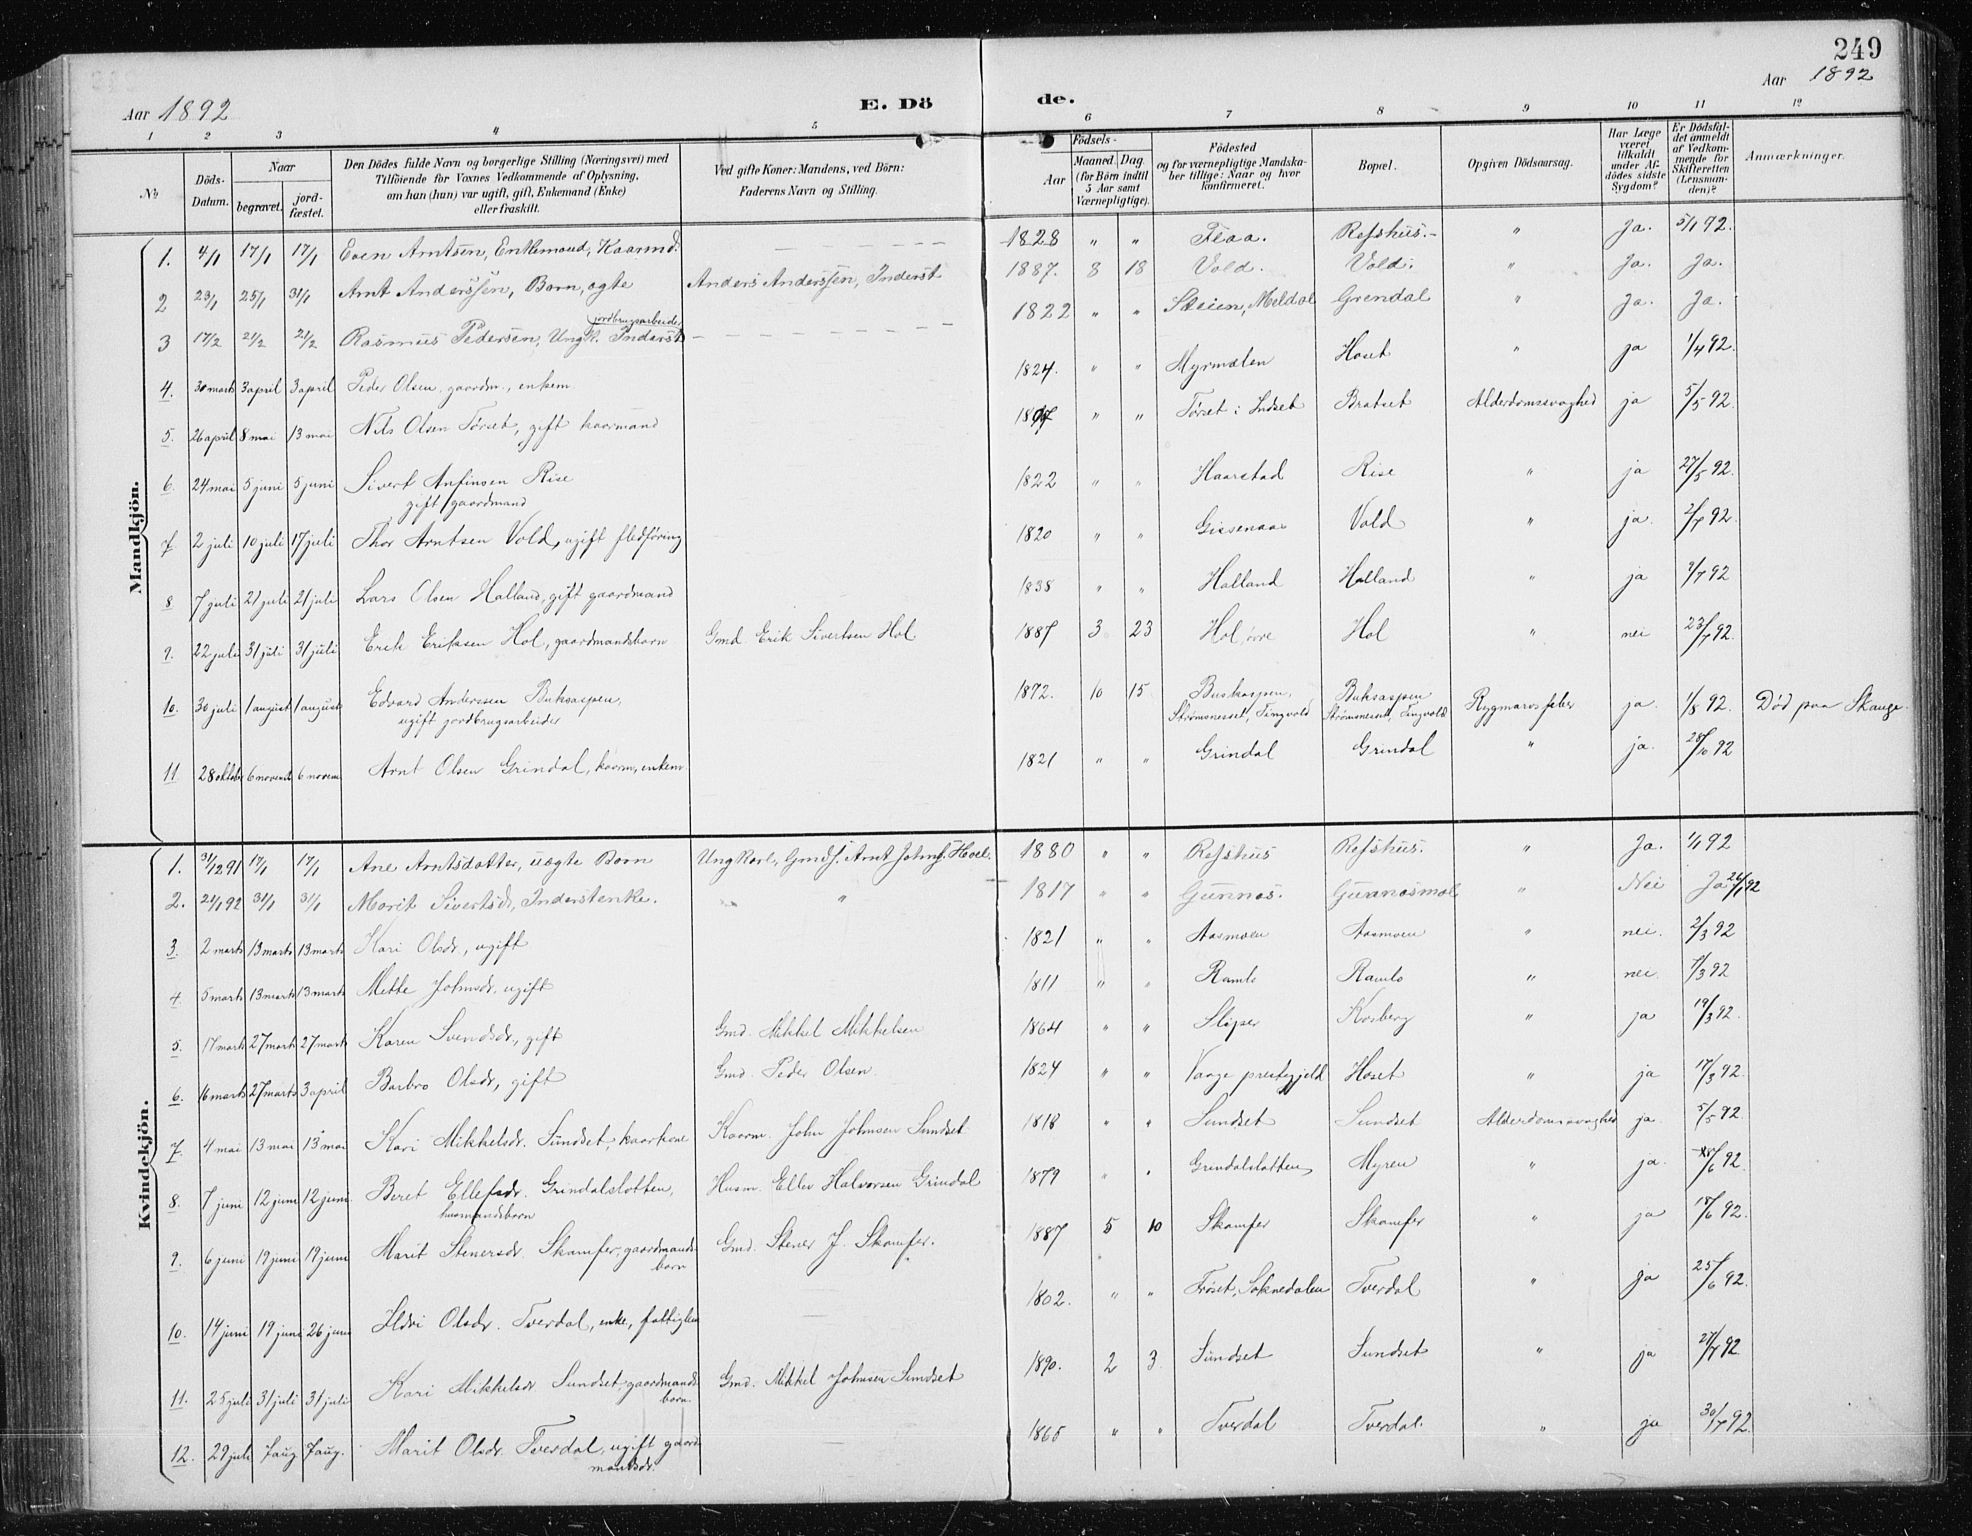 249
Aar 1892
E. Dö
de.
Aar 1892
1 2 3 4 5 6 7 8 9 10 11 12
№
Döds-Datum.
Naar
begravet.
jord-fæstet.
Den Dödes fulde Navn og borgerlige Stilling (Næringsvei) med Tilföiende for Voxnes Vedkommende af Oplysning, om han (hun) var ugift, gift, Enkemand (Enke) eller fraskilt.
Ved gifte Koner: Mandens, ved Börn: Faderens Navn og Stilling.
Födsels-
Aar
Maaned. Dag.
(for Börn indtil 5 Aar samt Værnepligtige).
Födested og for værnepligtige Mandska-ber tillige: Naar og hvor konfirmeret.
Bopæl.
Opgiven Dödsaarsag.
Har Læge været tilkaldt under Af-dödes sidste Sygdom?
Er Dödsfal-det anmeldt af Vedkom-mende for Skifteretten (Lensman-den)?
Anmærkninger.
Mandkjön.
1. 4/1 17/1 17/1 Even Arntsen, Enkemand, Kaarmd. 1828 " " Flaa. Refshus. " Ja. 5/1 92.
2 23/1 25/1 31/1 Arnt Anderssen, Barn, ægte Anders Anderssen, Inderst 1887. 8 18 Vold. Vold. " Ja. Ja.
3 17/2 21/2 21/2 Rasmus Pedersen, Ungk. Inderst jordbrugsarbeider 1822 " " Steien, Meldal Grendal " Ja. Ja.
4. 30 marts 3 april 3 april Peder Olsen, gaardm., enkem. 1824. " " Myrmælen Hoset " ja 1/4 92.
5. 26 april 8 mai 13 mai Nils Olsen Torset, gift kaarmand " " Torset i Indset Bratset Alderdomssvaghed ja 5/5 92.
6. 24 mai 5 juni 5 juni Sivert Anfinsen Rise gift gaardmand 1822 " " Haarstad Rise " ja 27/5 92.
7. 2 juli 10 juli 17 juli Thor Arntsen Vold, ugift fledføring 1820 " " Gissenaas Vold " ja. 2/7 92.
8 7 juli 21 juli 21 juli Lars Olsen Halland, gift gaardmand 1838 " " Halland Halland " ja 9/7 92
9. 22 juli 31 juli 31 juli Erik Eriksen Hol, gaardmandsbarn Gmd. Erik Sivertsen Hol 1887 3 23 Hol, øvre Hol " nei 23/7 92.
10. 30 juli 1 august 1 august Edvard Anderssen Buksaspen, ugift jordbrugsarbeider 1872. 10 15 Buskaspen, Strømsnesset, Tingvold Buksaspen Strømsnesset, Tingvold Rygmarvsfeber ja. 1/8 92. Død paa Skauge.
11 28 oktober 6 novemb 6 novem Arnt Olsen Grindal, kaarm, enkem 1821 " " Grindal Grindal " ja. 28/10 92
Kvindekjön.
1. 31/12 91 17/1 17/1 Ane Arntsdatter, uægte Barn Ungkarl, Gmds. Arnt Johns. Hoel. 1880 " " Refshus Refshus. " Ja. 1/1 92
2. 21/1 92 31/1 31/1 Marit Sivertsdr, Inderstenke. " 1817 " " Gunnes. Gunnesmoe " Nei Ja 26/1 92
3. 2 marts 13 marts 13 marts Kari Olsdr, ugift 1821 " " Aasmoen Aasmoen " nei. 2/3 92
4 5 marts 13 marts 13 marts Mette Johnsdr. ugift 1811 " " Ramlo Ramlo " nei. 7/3 92
5. 17 marts 27 marts 27 marts Karen Svendsdr., gift Gmd. Mikkel Mikkelsen 1864 " " Sliper Kosberg " ja 19/3 92.
6. 16 marts 27 marts 3 april Barbro Olsdr, gift Gmd. Peder Olsen 1824 " " Vaage prestegjeld Hoset " ja 17/3 92.
7. 4 mai 13 mai 13 mai Kari Mikkelsdr. Sundset, kaarkone Kaarm. John Johnsen Sundset 1818 " " Sundset Sundset Alderdomssvaghed ja. 5/5 92
8. 7 juni 12 juni 12 juni Beret Ellefsdr. Grindalslotten, husmandsbarn Husm. Ellev Halvorsen Grindal 1879 " " Grindalslotten Myren " ja. 92.
9. 6 juni 19 juni 19 juni Marit Stenersdr. Skamfer, gaardmands-barn Gmd. Stener J. Skamfer. 1887 5 10 Skamfer Skamfer " ja 18/6 92.
10. 14 juni 19 juni 26 juni Ildri Olsdr. Tverdal, enke, fattiglem 1802. " " Frøset, Soknedalen Tverdal " ja 25/6 92.
11. 25 juli 31 juli 31 juli Kari Mikkelsdr Sundset, gaardmands-barn. Gmd. Mikkel Johnsen Sundset 1890. 2 3 Sundset Sundset " ja 27/7 92
12. 29 juli 7 aug. 7 aug. Marit Olsdr. Tverdal, ugift gaard-mandsdr. 1865 " " Tverdal Tverdal " ja 30/7 92.